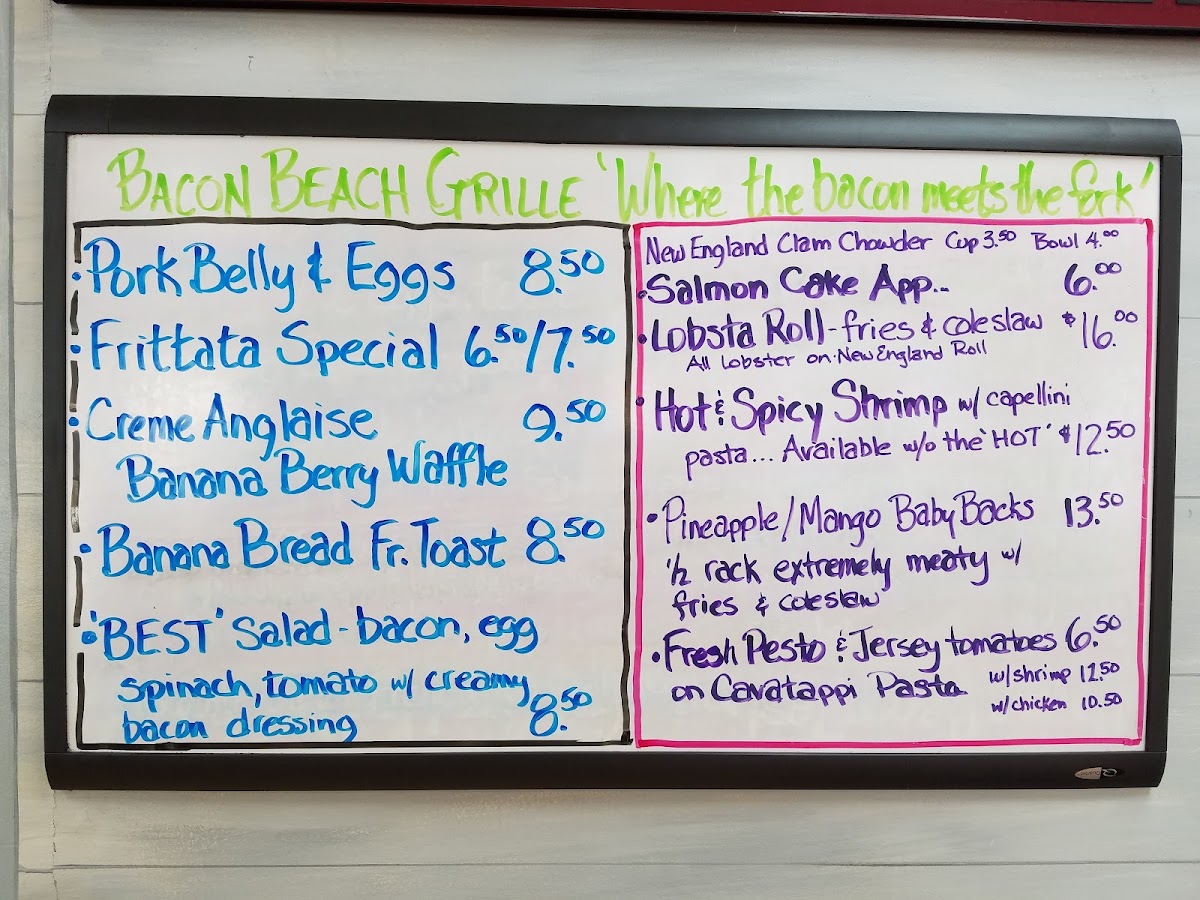 BACON BEACH GRILLE 'Where the bacon meets the fork'
• Pork Belly & Eggs 8.50
• Frittata Special 6.50/7.50
• Creme Anglaise 9.50
Banana Berry Waffle
• Banana Bread Fr. Toast 8.50
• 'BEST' Salad - bacon, egg
spinach, tomato w/ creamy
bacon dressing 8.50
New England Clam Chowder Cup 3.50 Bowl 4.00
• Salmon Cake App... 6.00
• Lobsta Roll - fries & coleslaw $16.00
All Lobster on New England Roll
• Hot & Spicy Shrimp w/ capellini
pasta... Available w/o the 'HOT' $12.50
• Pineapple/Mango Baby Backs 13.50
1/2 rack extremely meaty w/
fries & coleslaw
• Fresh Pesto & Jersey tomatoes 6.50
on Cavatappi Pasta w/shrimp 12.50
w/chicken 10.50